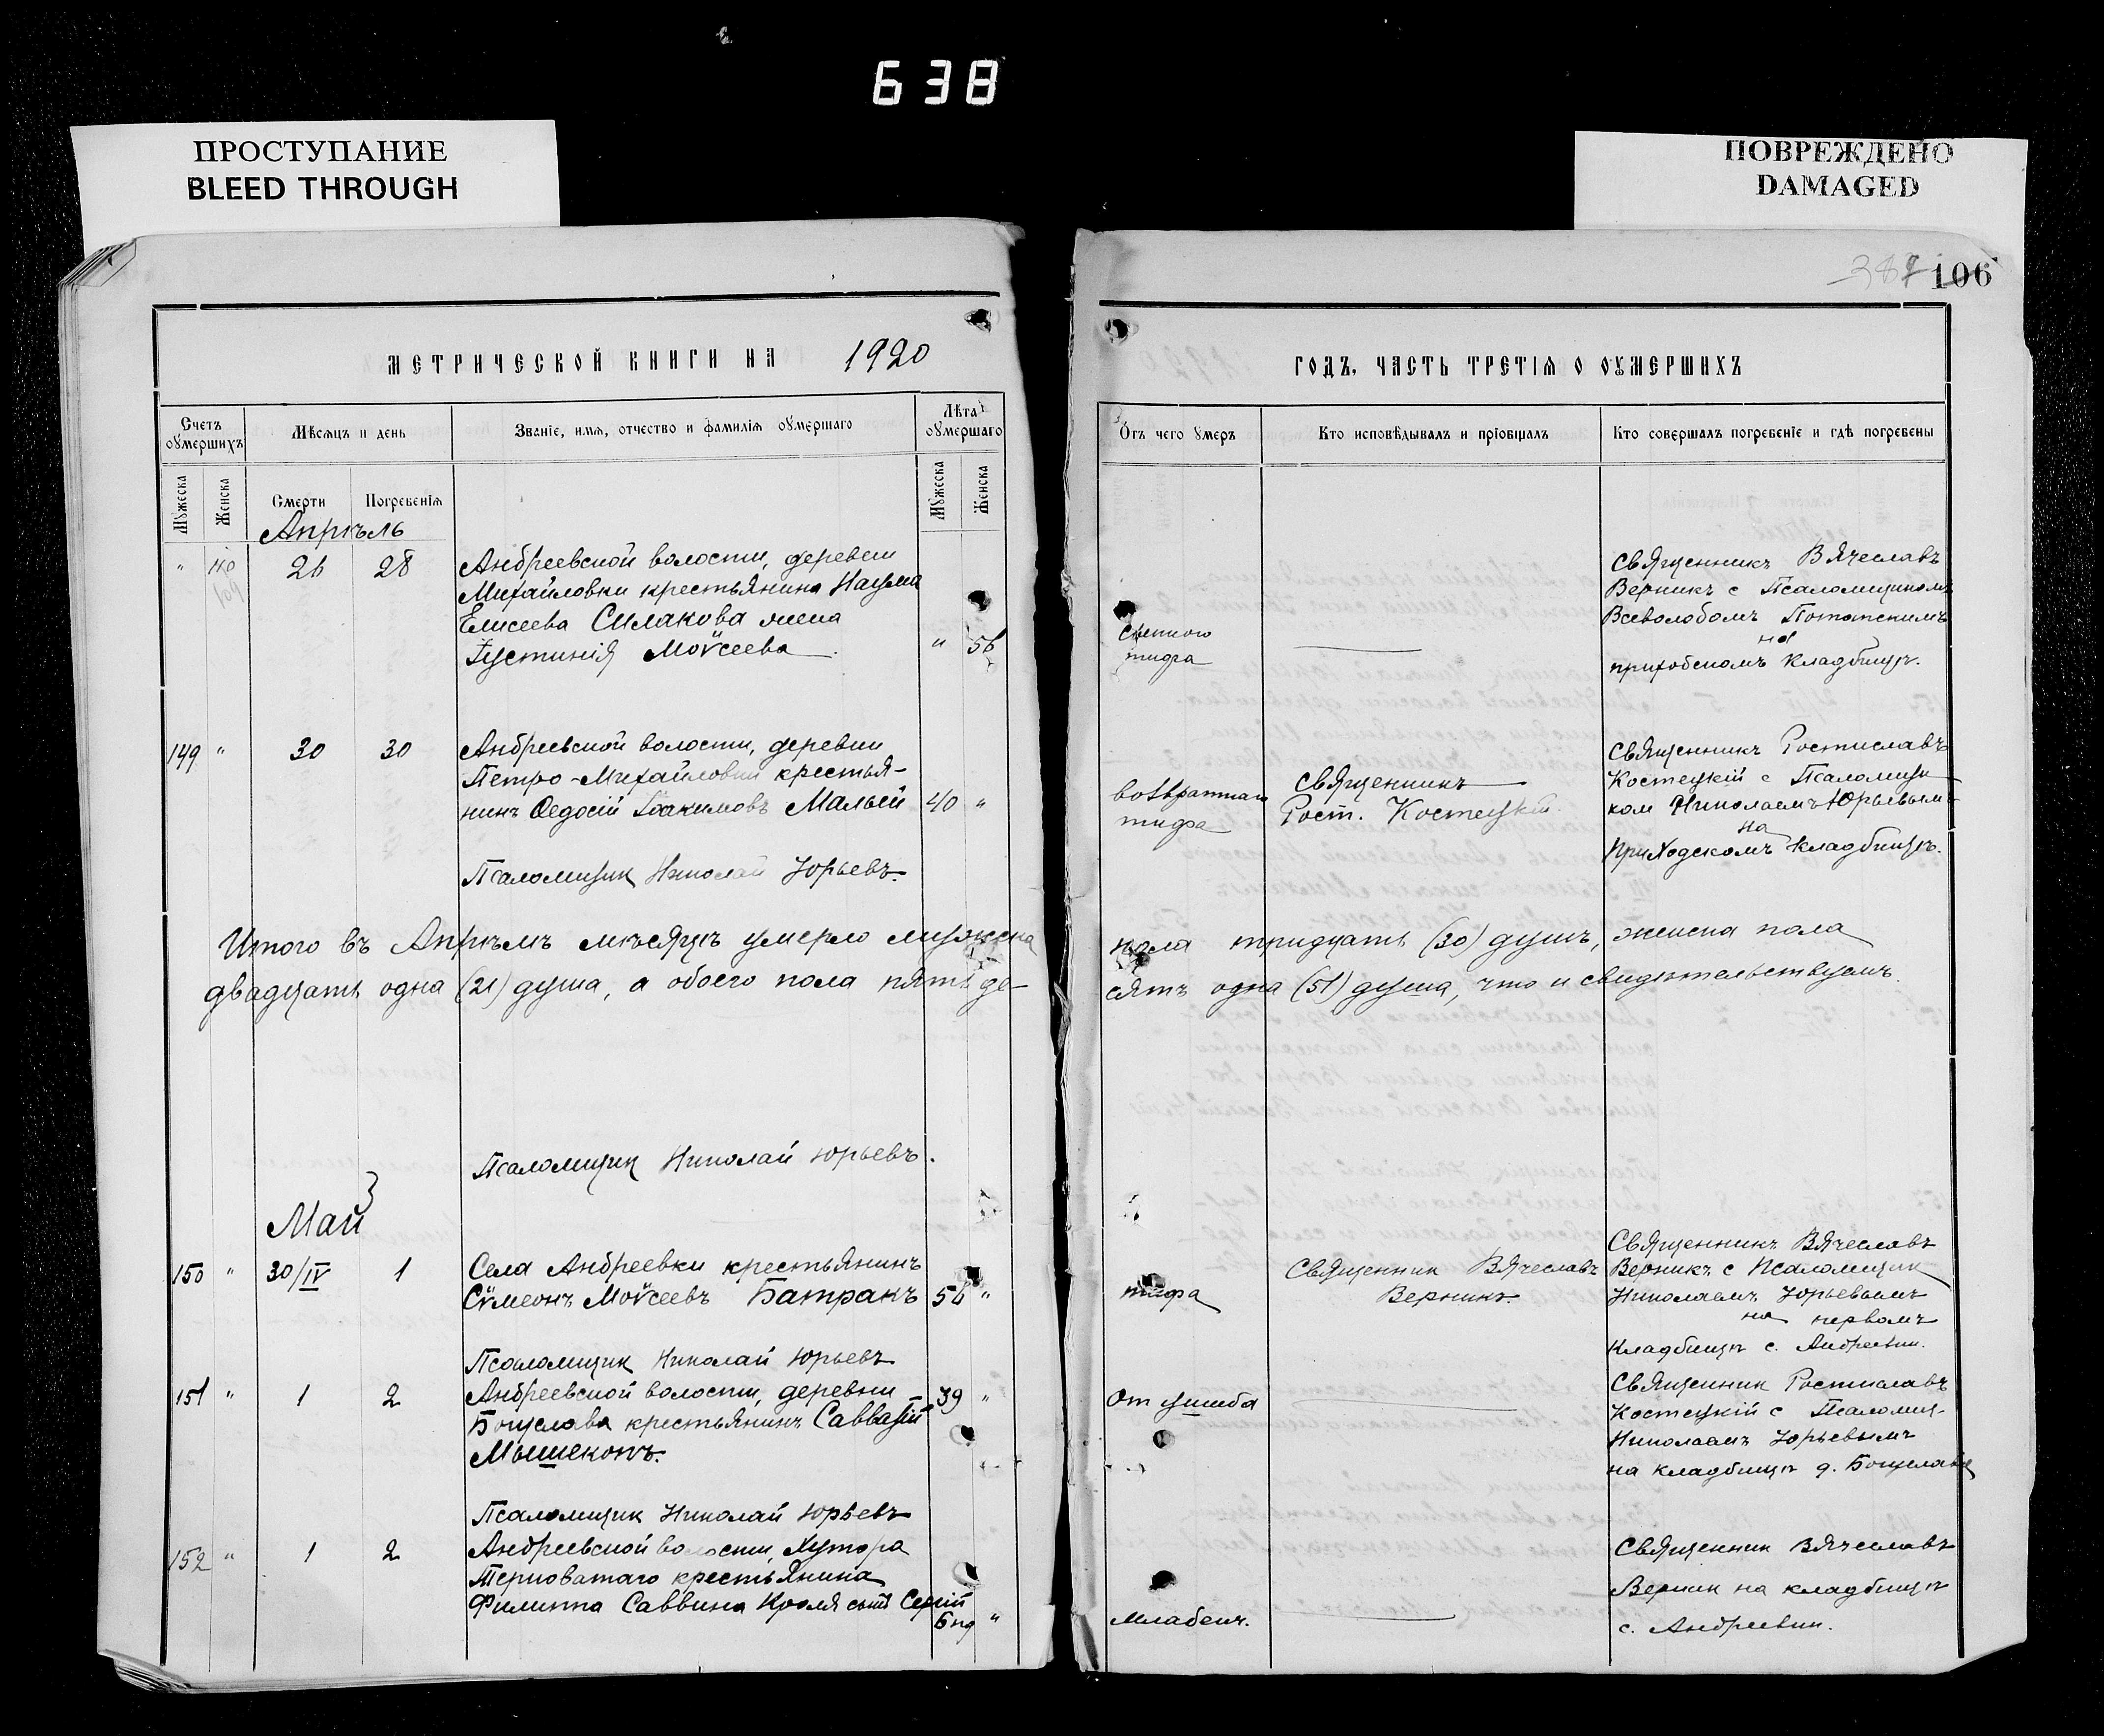 638
ПРОСТУПАНИЕ
BLEED THROUGH
ПОВРЕЖДЕНО
DAMAGED
106
МЕТРИЧЕСКОЙ КНИГИ НА 1920
ГОДЪ, ЧАСТЬ ТРЕТІѦ О ОУМЕРШИХЪ
Счетъ оумершихъ
Мѣсяцъ и день
Званіе, имя, отчество и фамилія оумершаго
Лѣта оумершаго
Отъ чего умеръ
Кто исповѣдывалъ и пріобщалъ
Кто совершалъ погребеніе и гдѣ погребены
Мужеска
Женска
Смерти
Погребенія
Мужеска
Женска
Апрѣль
" 26 28 Андреевской волости, деревни
Михайловки крестьянина Наума
Елисеева Силакова жена
Іустинія Моѵсеева " 56
сыпного
тифа
Священникъ Вячеславъ
Верникъ с Псаломщикомъ
Всеволодомъ
на
приходскомъ кладбищѣ.
149 " 30 30 Андреевской волости, деревни
Петро-Михайловки крестья-
нинъ Ѳедосій Іоакимовъ Малый 40 "
Псаломщик Николай Юрьевъ.
возвратнаго
тифа
Священникъ
Рост. Костецкій.
Священникъ Ростиславъ
Костецкій с Псаломщи
ком Николаемъ Юрьевымъ
на
приходскомъ кладбищѣ.
Итого въ Апрѣлѣ мѣсяцѣ умерло мужеска
пола тридцать (30) душъ, женска пола
двадцать одна (21) душа, а обоего пола пятьде-
сятъ одна (51) душа, что и свидѣтельствуемъ.
Псаломщик Николай Юрьевъ.
Май
150 " 30/IV 1 Села Андреевки крестьянинъ
Сѵмеонъ Моѵсеевъ Батракъ 56 "
Псаломщик Николай Юрьевъ
тифа
Священник Вячеславъ
Верникъ.
Священникъ Вячеславъ
Верникъ с Псаломщик
Николаемъ Юрьевымъ
на первомъ
кладбищѣ с. Андреевки.
151 " 1 2 Андреевской волости, деревни 39 "
Богуслава крестьянинъ Савватій
Мышеконъ.
Псаломщик Николай Юрьевъ
От ушиба
Священник Ростиславъ
Костецкій с Псаломщ-
Николаемъ Юрьевымъ
на кладбищѣ д. Богуслава
152 " 1 2 Андреевской волости, Хутора
Терноватаго крестьянина
Филиппа Саввина Кроля сынъ Сергій
6 нд "
младенч.
Священник Вячеславъ
Верник на кладбищѣ
с. Андреевки.